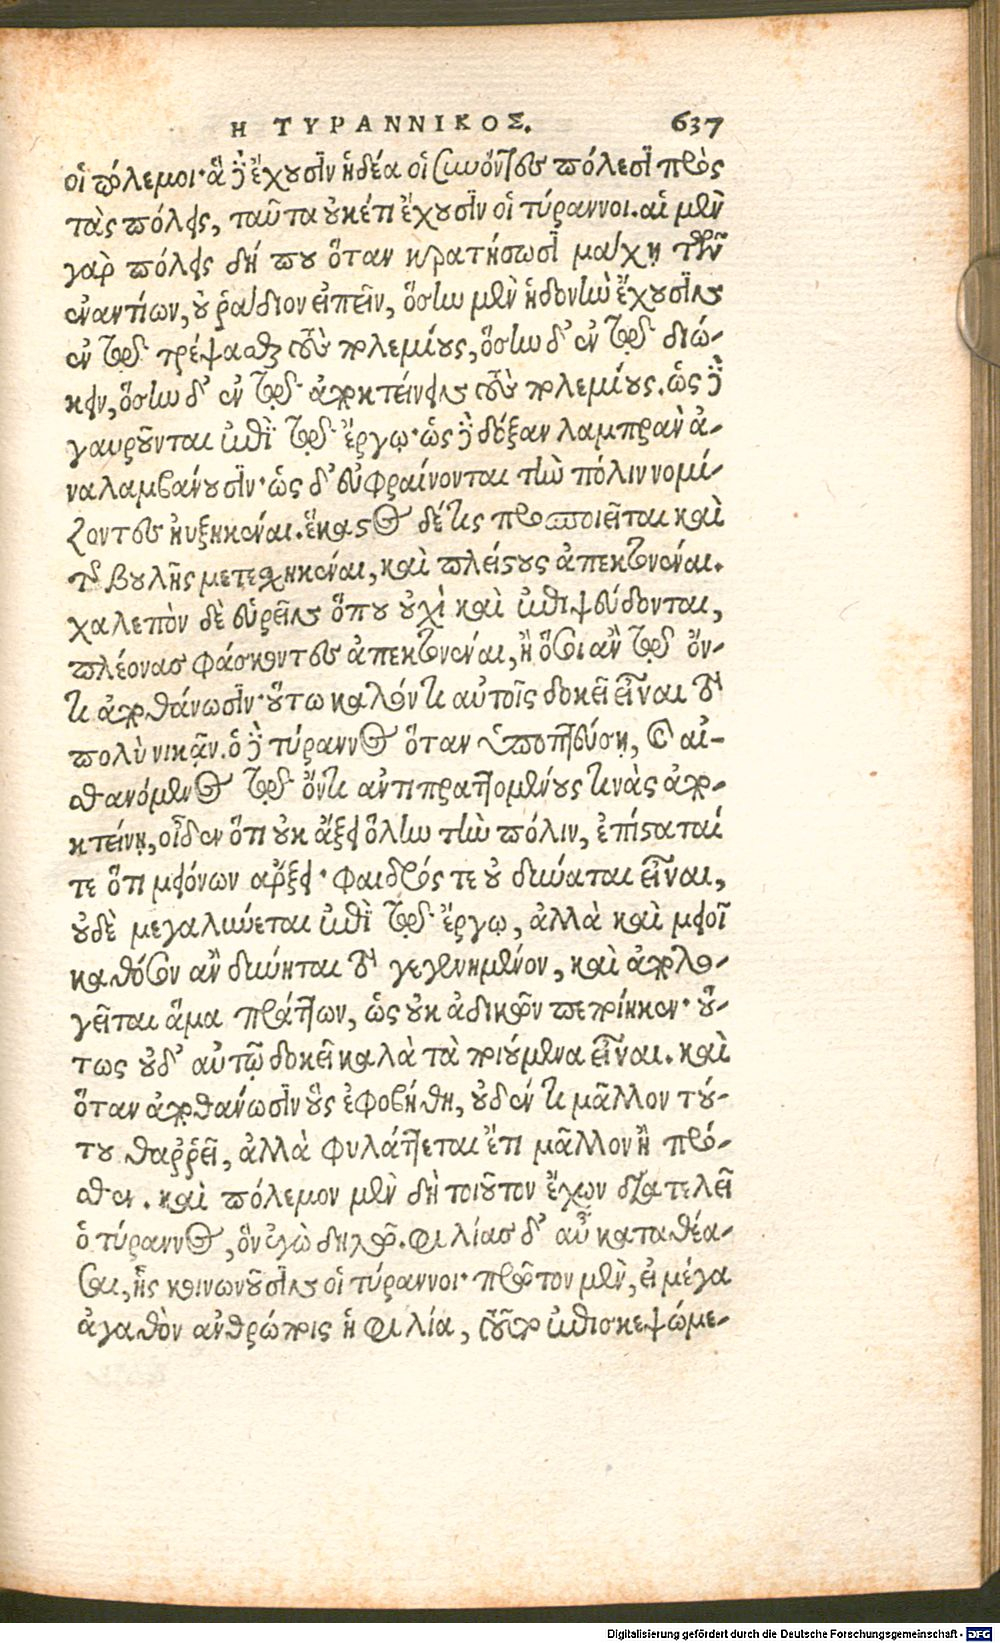 Η ΤΥΡΑΝΝΙΚΟΣ. 637
οἱ πόλεμοι· ἃ δὲ ἔχουσιν ἡδέα οἱ συνόντες πόλεσι πρὸς
τὰς πόλεις, ταῦτα οὐκέτι ἔχουσιν οἱ τύραννοι. αἱ μὲν
γὰρ πόλεις δή που ὅταν κρατήσωσι μάχῃ τῶν
ἐναντίων, οὐ ῥᾴδιον εἰπεῖν, ὅσην μὲν ἡδονὴν ἔχουσιν
ἐν τῷ τρέψασθαι τοὺς πολεμίους, ὅσην δ' ἐν τῷ διώ-
κειν, ὅσην δ' ἐν τῷ ἀποκτείνειν τοὺς πολεμίους. ὡς δὲ
γαυροῦνται ἐπὶ τῷ ἔργῳ· ὡς δὲ δόξαν λαμπρὰν ἀ-
ναλαμβάνουσιν· ὡς δ' εὐφραίνονται τὴν πόλιν νομί-
ζοντες ηὐξηκέναι. ἕκαστος δέ τις προσποιεῖται καὶ
τῆς βουλῆς μετεσχηκέναι, καὶ πλείστους ἀπεκτονέναι.
χαλεπὸν δὲ εὑρεῖν ὅπου οὐχὶ καὶ ἐπιψεύδονται,
πλέονας φάσκοντες ἀπεκτονέναι, ἢ ὅσοι ἂν τῷ ὄν-
τι ἀποθάνωσιν· οὕτω καλόν τι αὐτοῖς δοκεῖ εἶναι τὸ
πολὺ νικᾷν. ὁ δὲ τύραννος ὅταν ὑποπτεύσῃ, καὶ αἰ-
σθανόμενος τῷ ὄντι ἀντιπραττομένους τινὰς ἀπο-
κτείνῃ, οἶδεν ὅτι οὐκ αὔξει ὅλην τὴν πόλιν, ἐπίσταταί
τε ὅτι μειόνων ἄρξει· φαιδρός τε οὐ δύναται εἶναι,
οὐδὲ μεγαλύνεται ἐπὶ τῷ ἔργῳ, ἀλλὰ καὶ μειοῖ
καθόσον ἂν δύνηται τὸ γεγενημένον, καὶ ἀπολο-
γεῖται ἅμα πράττων, ὡς οὐκ ἀδικῶν πεποίηκεν· οὕ-
τως οὐδ' αὐτῷ δοκεῖ καλὰ τὰ ποιούμενα εἶναι. καὶ
ὅταν ἀποθάνωσιν οὓς ἐφοβήθη, οὐδέν τι μᾶλλον τού-
του θαῤῥεῖ, ἀλλὰ φυλάττεται ἔτι μᾶλλον ἢ πρό-
σθεν. καὶ πόλεμον μὲν δὴ τοιοῦτον ἔχων διατελεῖ
ὁ τύραννος, ὃν ἐγὼ δηλῶ. φιλίας δ' αὖ καταθέα-
σαι, ἧς κοινωνοῦσιν οἱ τύραννοι· πρῶτον μὲν, εἰ μέγα
ἀγαθὸν ἀνθρώποις ἡ φιλία, τοῦτο ἐπισκεψώμε-
Digitalisierung gefördert durch die Deutsche Forschungsgemeinschaft - DFG